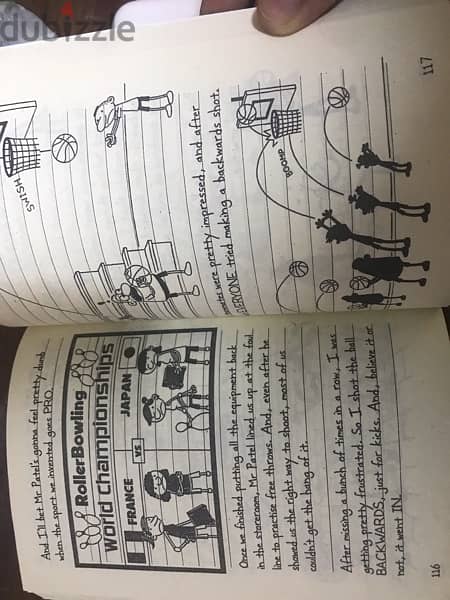 dubizzle
And I'll bet Mr Patel's gonna feel pretty dumb
when the sport we invented goes PRO.
RollerBowling
World Championships
FRANCE
VS
JAPAN
Once we finished putting all the equipment back
in the storeroom, Mr Patel lined us up at the foul
line to practise free throws. And, even after he
showed us the right way to shoot, most of us
couldn't get the hang of it.
After missing a bunch of times in a row, I was
getting pretty frustrated. So I shot the ball
BACKWARDS, just for kicks. And, believe it or
not, it went IN.
116
SWISH
were pretty impressed, and after
EVERYONE tried making a backwards shot.
BOOMP
117